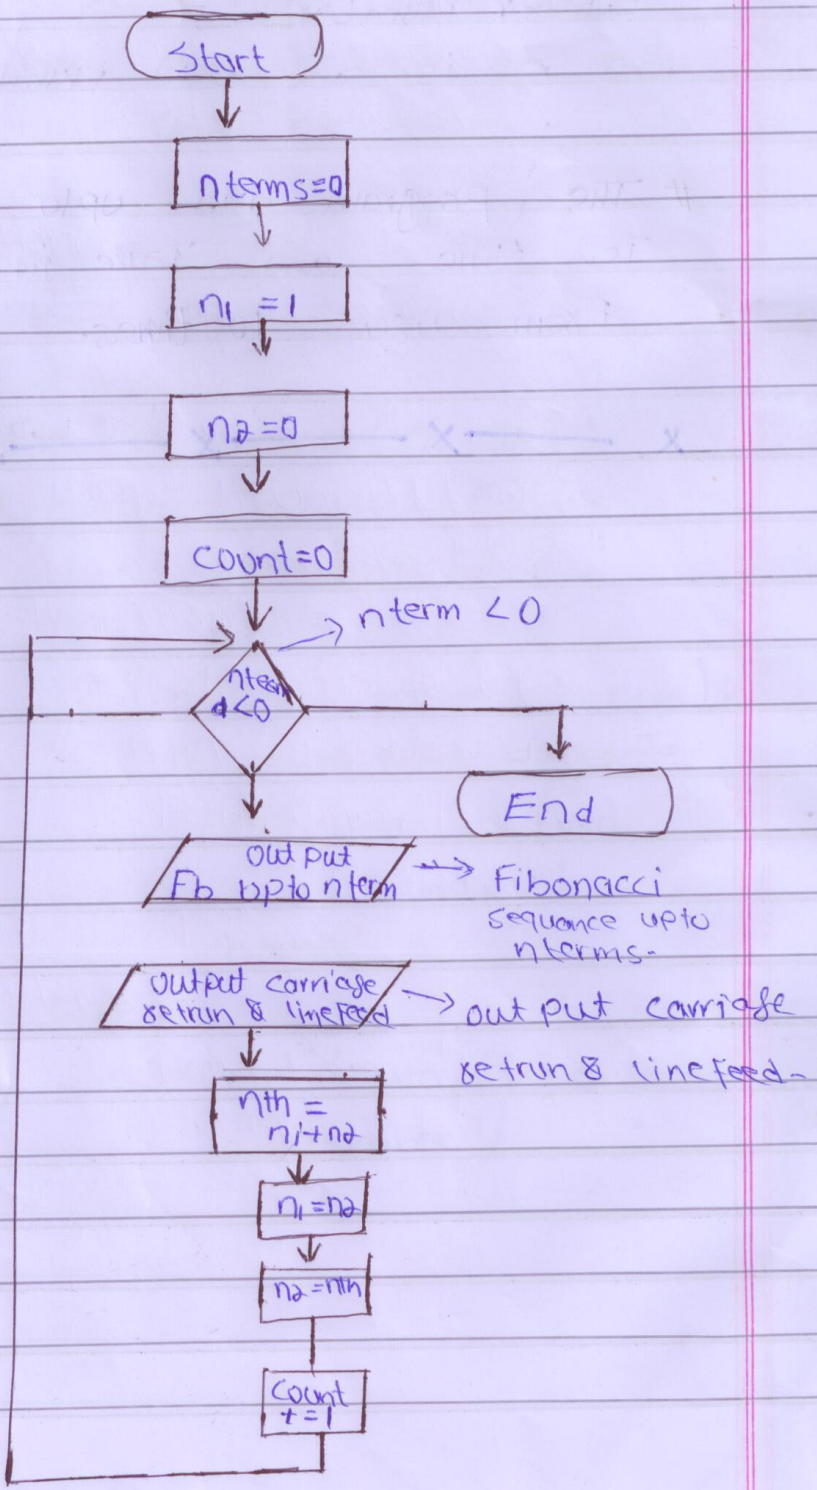 Start
nterms=0
n1 = 1
n2=0
Count=0
nterm <0
nterm
<0
End
output
Fb upto nterm
Fibonacci
sequance upto
nterms.
output carriage
retrun & linefeed
output carriage
retrun & linefeed.
nth =
n1+n2
n1=n2
n2=nth
Count
+=1